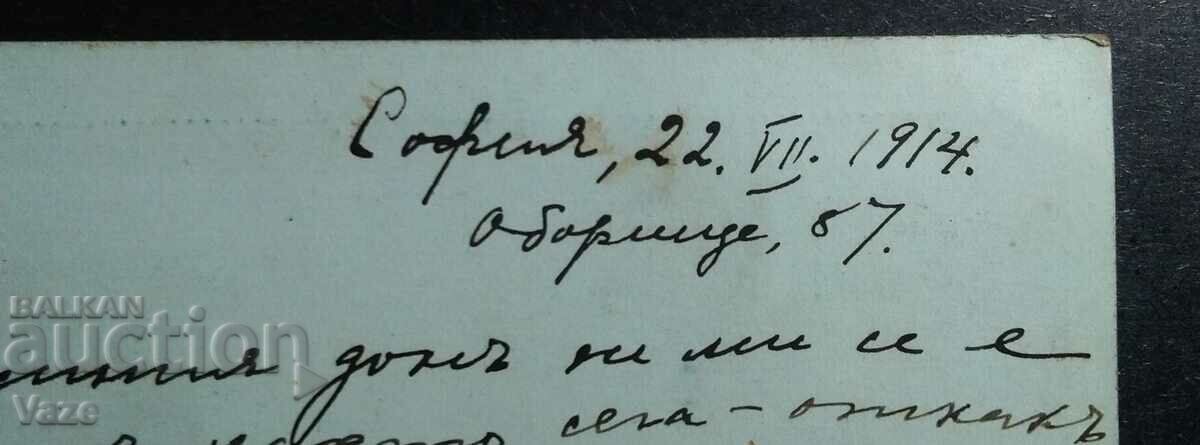 София, 22. VII. 1914.
Оборище, 87.
донъ ни ми се е
сега - откакъ
BALKAN
auction
Vaze